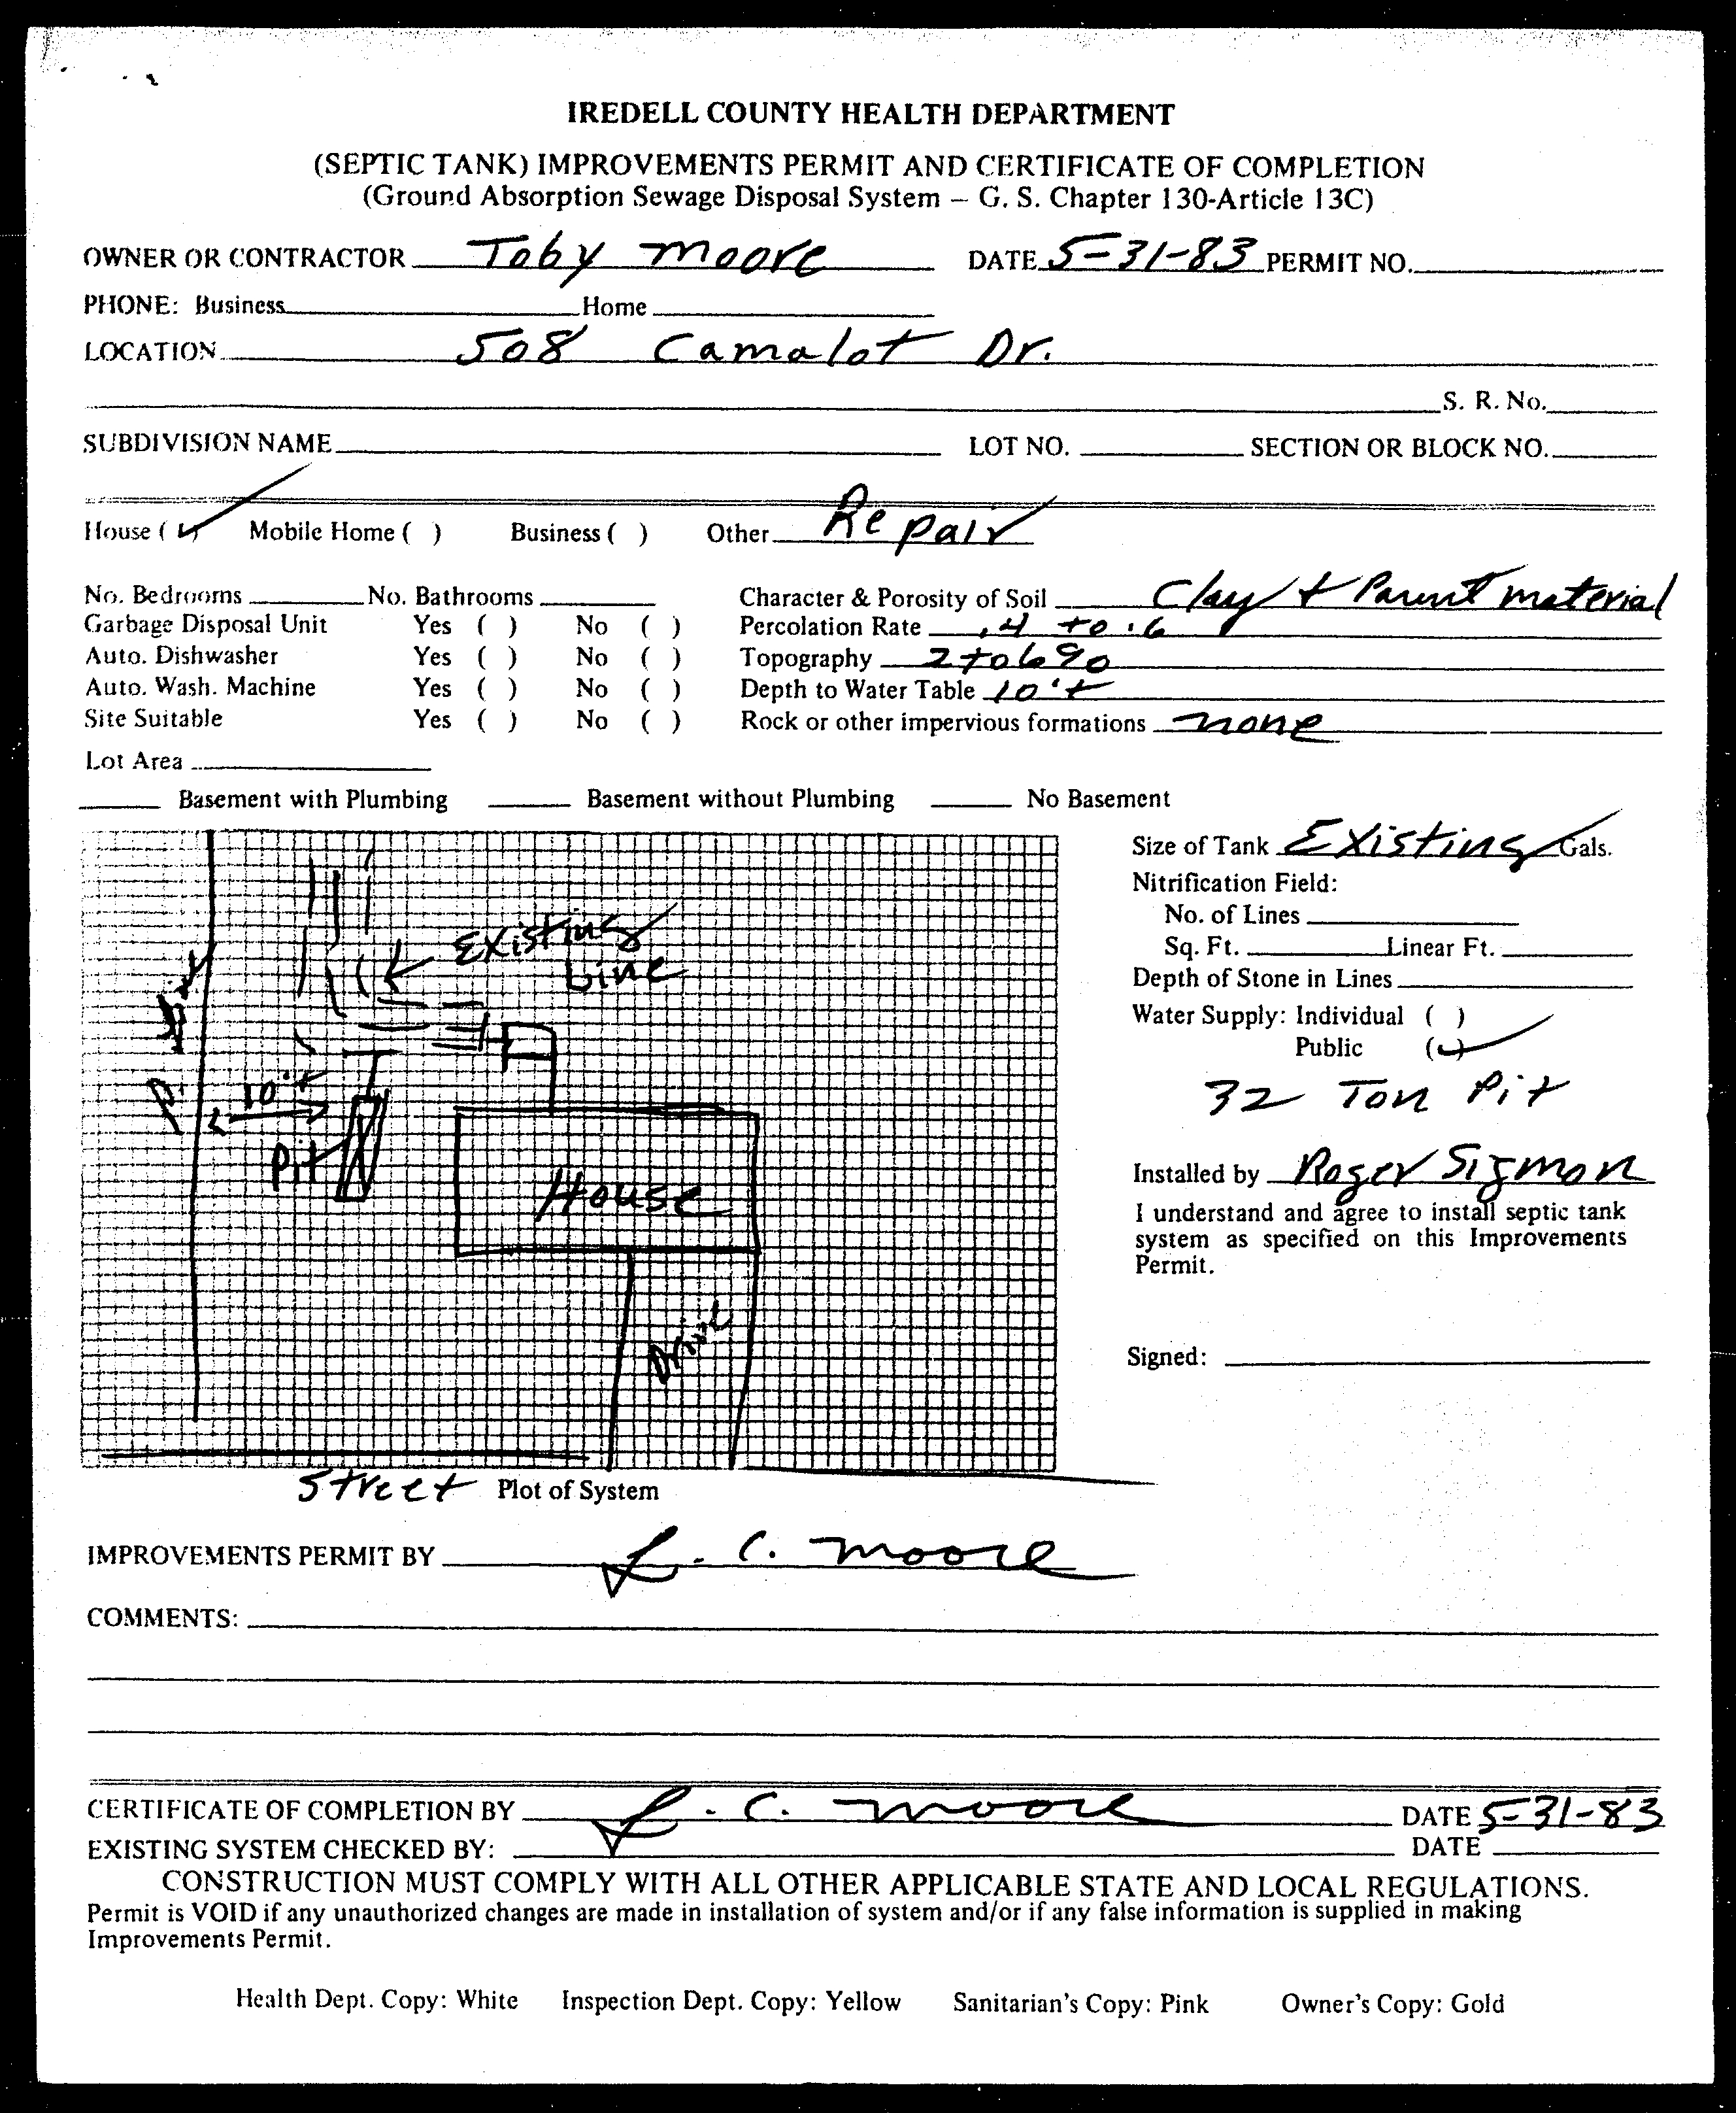 IREDELL COUNTY HEALTH DEPARTMENT
(SEPTIC TANK) IMPROVEMENTS PERMIT AND CERTIFICATE OF COMPLETION
(Ground Absorption Sewage Disposal System – G. S. Chapter 130-Article 13C)
OWNER OR CONTRACTOR Toby Moore DATE 5-31-83 PERMIT NO.
PHONE: Business Home
LOCATION 508 Camalot Dr.
S. R. No.
SUBDIVISION NAME LOT NO. SECTION OR BLOCK NO.
House (✓) Mobile Home ( ) Business ( ) Other Repair
No. Bedrooms No. Bathrooms Character & Porosity of Soil Clay + Parent material
Garbage Disposal Unit Yes ( ) No ( ) Percolation Rate .4 to .6
Auto. Dishwasher Yes ( ) No ( ) Topography 2 to 6 %
Auto. Wash. Machine Yes ( ) No ( ) Depth to Water Table 10'+
Site Suitable Yes ( ) No ( ) Rock or other impervious formations none
Lot Area
Basement with Plumbing Basement without Plumbing No Basement
Size of Tank Existing Gals.
Nitrification Field:
No. of Lines
Sq. Ft. Linear Ft.
Depth of Stone in Lines
Water Supply: Individual ( )
Public (✓)
32 Ton Pit
Installed by Roger Sigmon
I understand and agree to install septic tank
system as specified on this Improvements
Permit.
Signed:
Existing
Line
10'+
Pit
House
Drive
Street Plot of System
IMPROVEMENTS PERMIT BY L. C. Moore
COMMENTS:
CERTIFICATE OF COMPLETION BY L. C. Moore DATE 5-31-83
EXISTING SYSTEM CHECKED BY: DATE
CONSTRUCTION MUST COMPLY WITH ALL OTHER APPLICABLE STATE AND LOCAL REGULATIONS.
Permit is VOID if any unauthorized changes are made in installation of system and/or if any false information is supplied in making
Improvements Permit.
Health Dept. Copy: White Inspection Dept. Copy: Yellow Sanitarian's Copy: Pink Owner's Copy: Gold